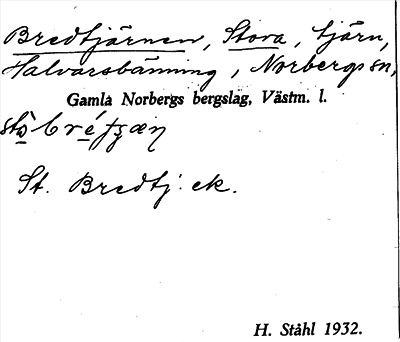 Bredtjärnen, Stora, tjärn,
Halvarsbänning, Norbergs sn,
Gamla Norbergs bergslag, Västm. l.
St. Bredtj. ek.
H. Ståhl 1932.